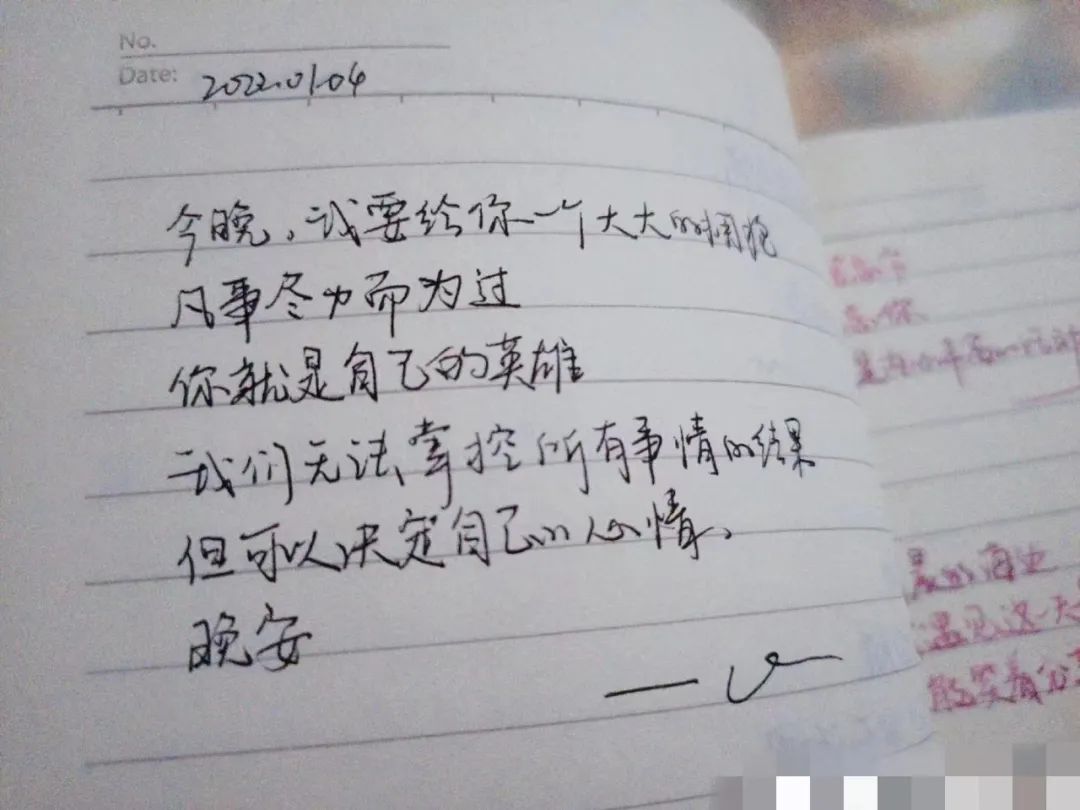 No.
Date: 2022.01.04
今晚，我要给你一个大大的拥抱
凡事尽力而为过
你就是自己的英雄
我们无法掌控所有事情的结果
但可以决定自己的心情。
晚安
遇见这一天